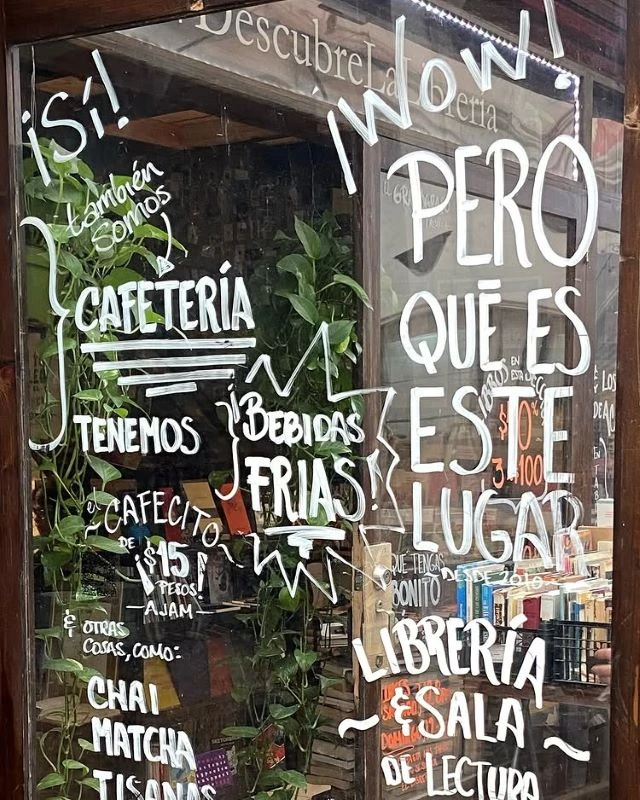 DescubreLaLibrería
¡Sí!
también
somos
CAFETERÍA
TENEMOS
¡BEBIDAS
FRIAS!
el
CAFECITO
DE
¡$15
PESOS!
AJAM
& OTRAS
COSAS, COMO:
CHAI
MATCHA
TISANAS
¡WOW!
PERO
QUÉ ES
ESTE
LUGAR
DESDE 2010
LIBRERÍA
& SALA
DE LECTURA
QUE TENGAS
BONITO
LIBROS EN
& LOS